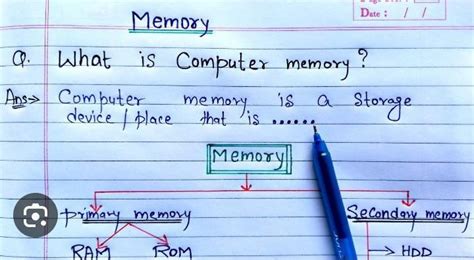 Date : / /
Memory
Q. What is Computer memory?
Ans→ Computer memory is a Storage
device / place that is ......
Memory
Primary memory Secondary memory
RAM ROM → HDD